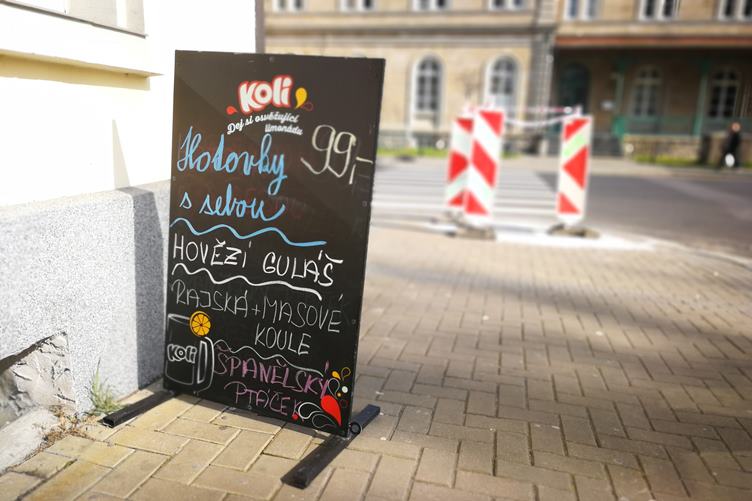 Koli
Dej si osvěžující
limonádu
Hotovky 99,-
s sebou
HOVĚZÍ GULÁŠ
RAJSKÁ+MASOVÉ
KOULE
Koli
ŠPANĚLSKÝ
PTÁČEK